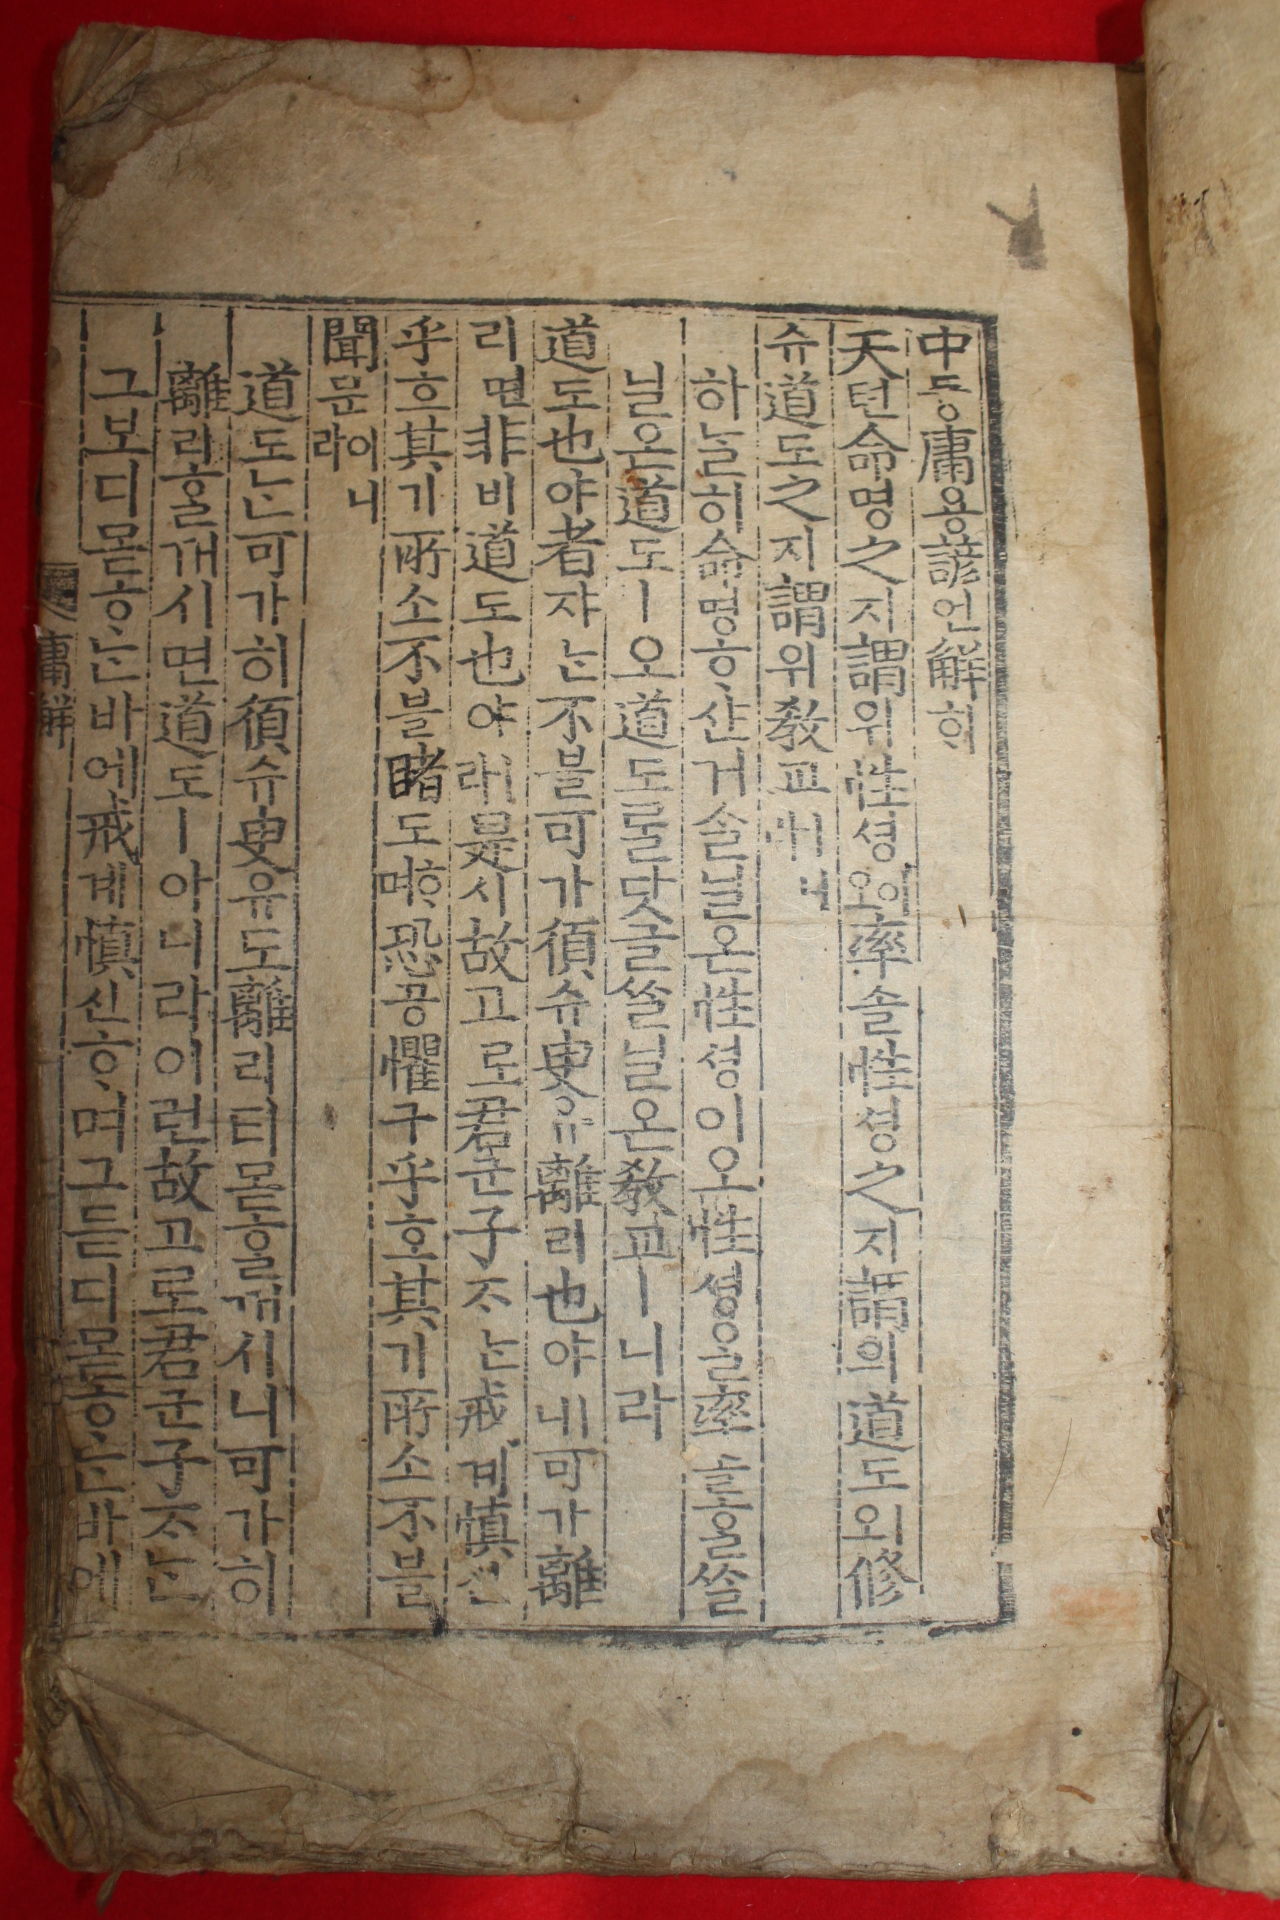 中듕庸용諺언解ᄒᆡ
天텬命명之지謂위性셩이오率솔性셩之지謂위道도ㅣ오修
슈道도之지謂위敎교ㅣ니라
하ᄂᆞᆯ히命명ᄒᆞ샨거ᄉᆞᆯ닐온性셩이오性셩을率솔ᄒᆞᆯᄡᆞᆯ
닐온道도ㅣ오道도ᄅᆞᆯ닷글ᄡᆞᆯ닐온敎교ㅣ니라
道도也야者쟈ᄂᆞᆫ不블可가須슈臾유離리也야ㅣ니可가離
리면非비道도也야ㅣ라是시故고로君군子ᄌᆞᄂᆞᆫ戒계愼신
乎호其기所소不블睹도ᄒᆞ며恐공懼구乎호其기所소不블
聞문이니라
道도ᄂᆞᆫ可가히須슈臾유도離리티몯ᄒᆞᆯ꺼시니可가히
離리ᄒᆞᆯ꺼시면道도ㅣ아니라이런故고로君군子ᄌᆞᄂᆞᆫ
그보디몯ᄒᆞᄂᆞᆫ바에戒계愼신ᄒᆞ며그듣디몯ᄒᆞᄂᆞᆫ바에
庸解